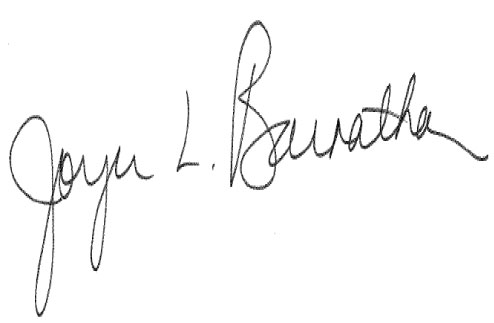 Joyce L. Barnathan